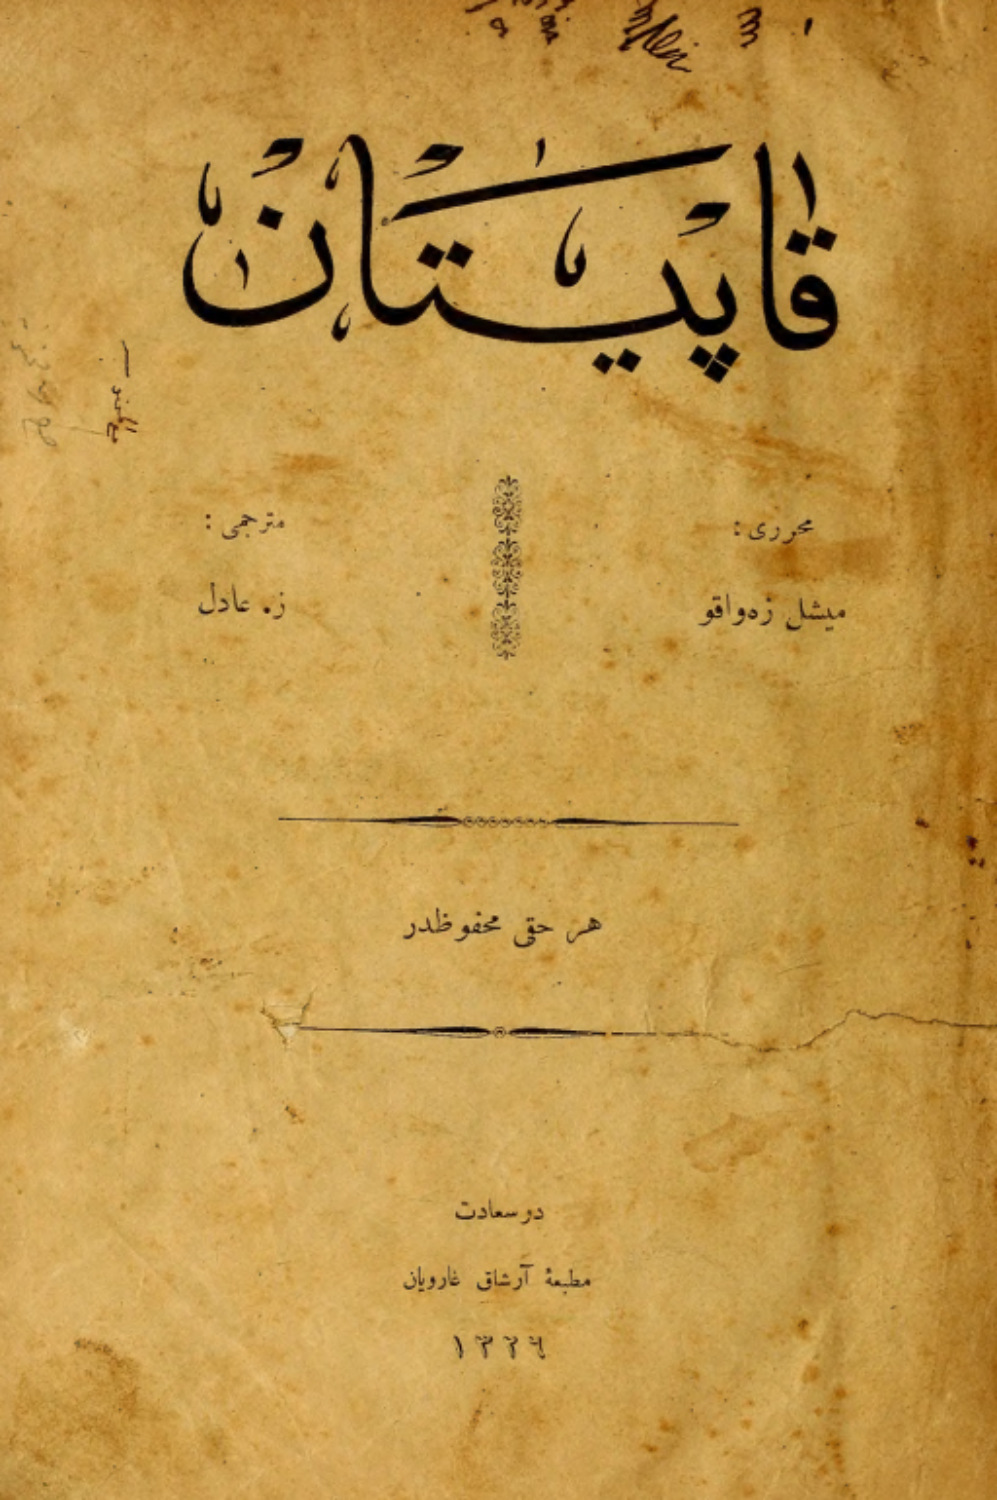 قاپيتان
محررى :
ميشل زه‌واقو
مترجمى :
ز. عادل
هر حقى محفوظدر
در سعادت
مطبعهٔ آرشاق غارويان
١٣٢٦